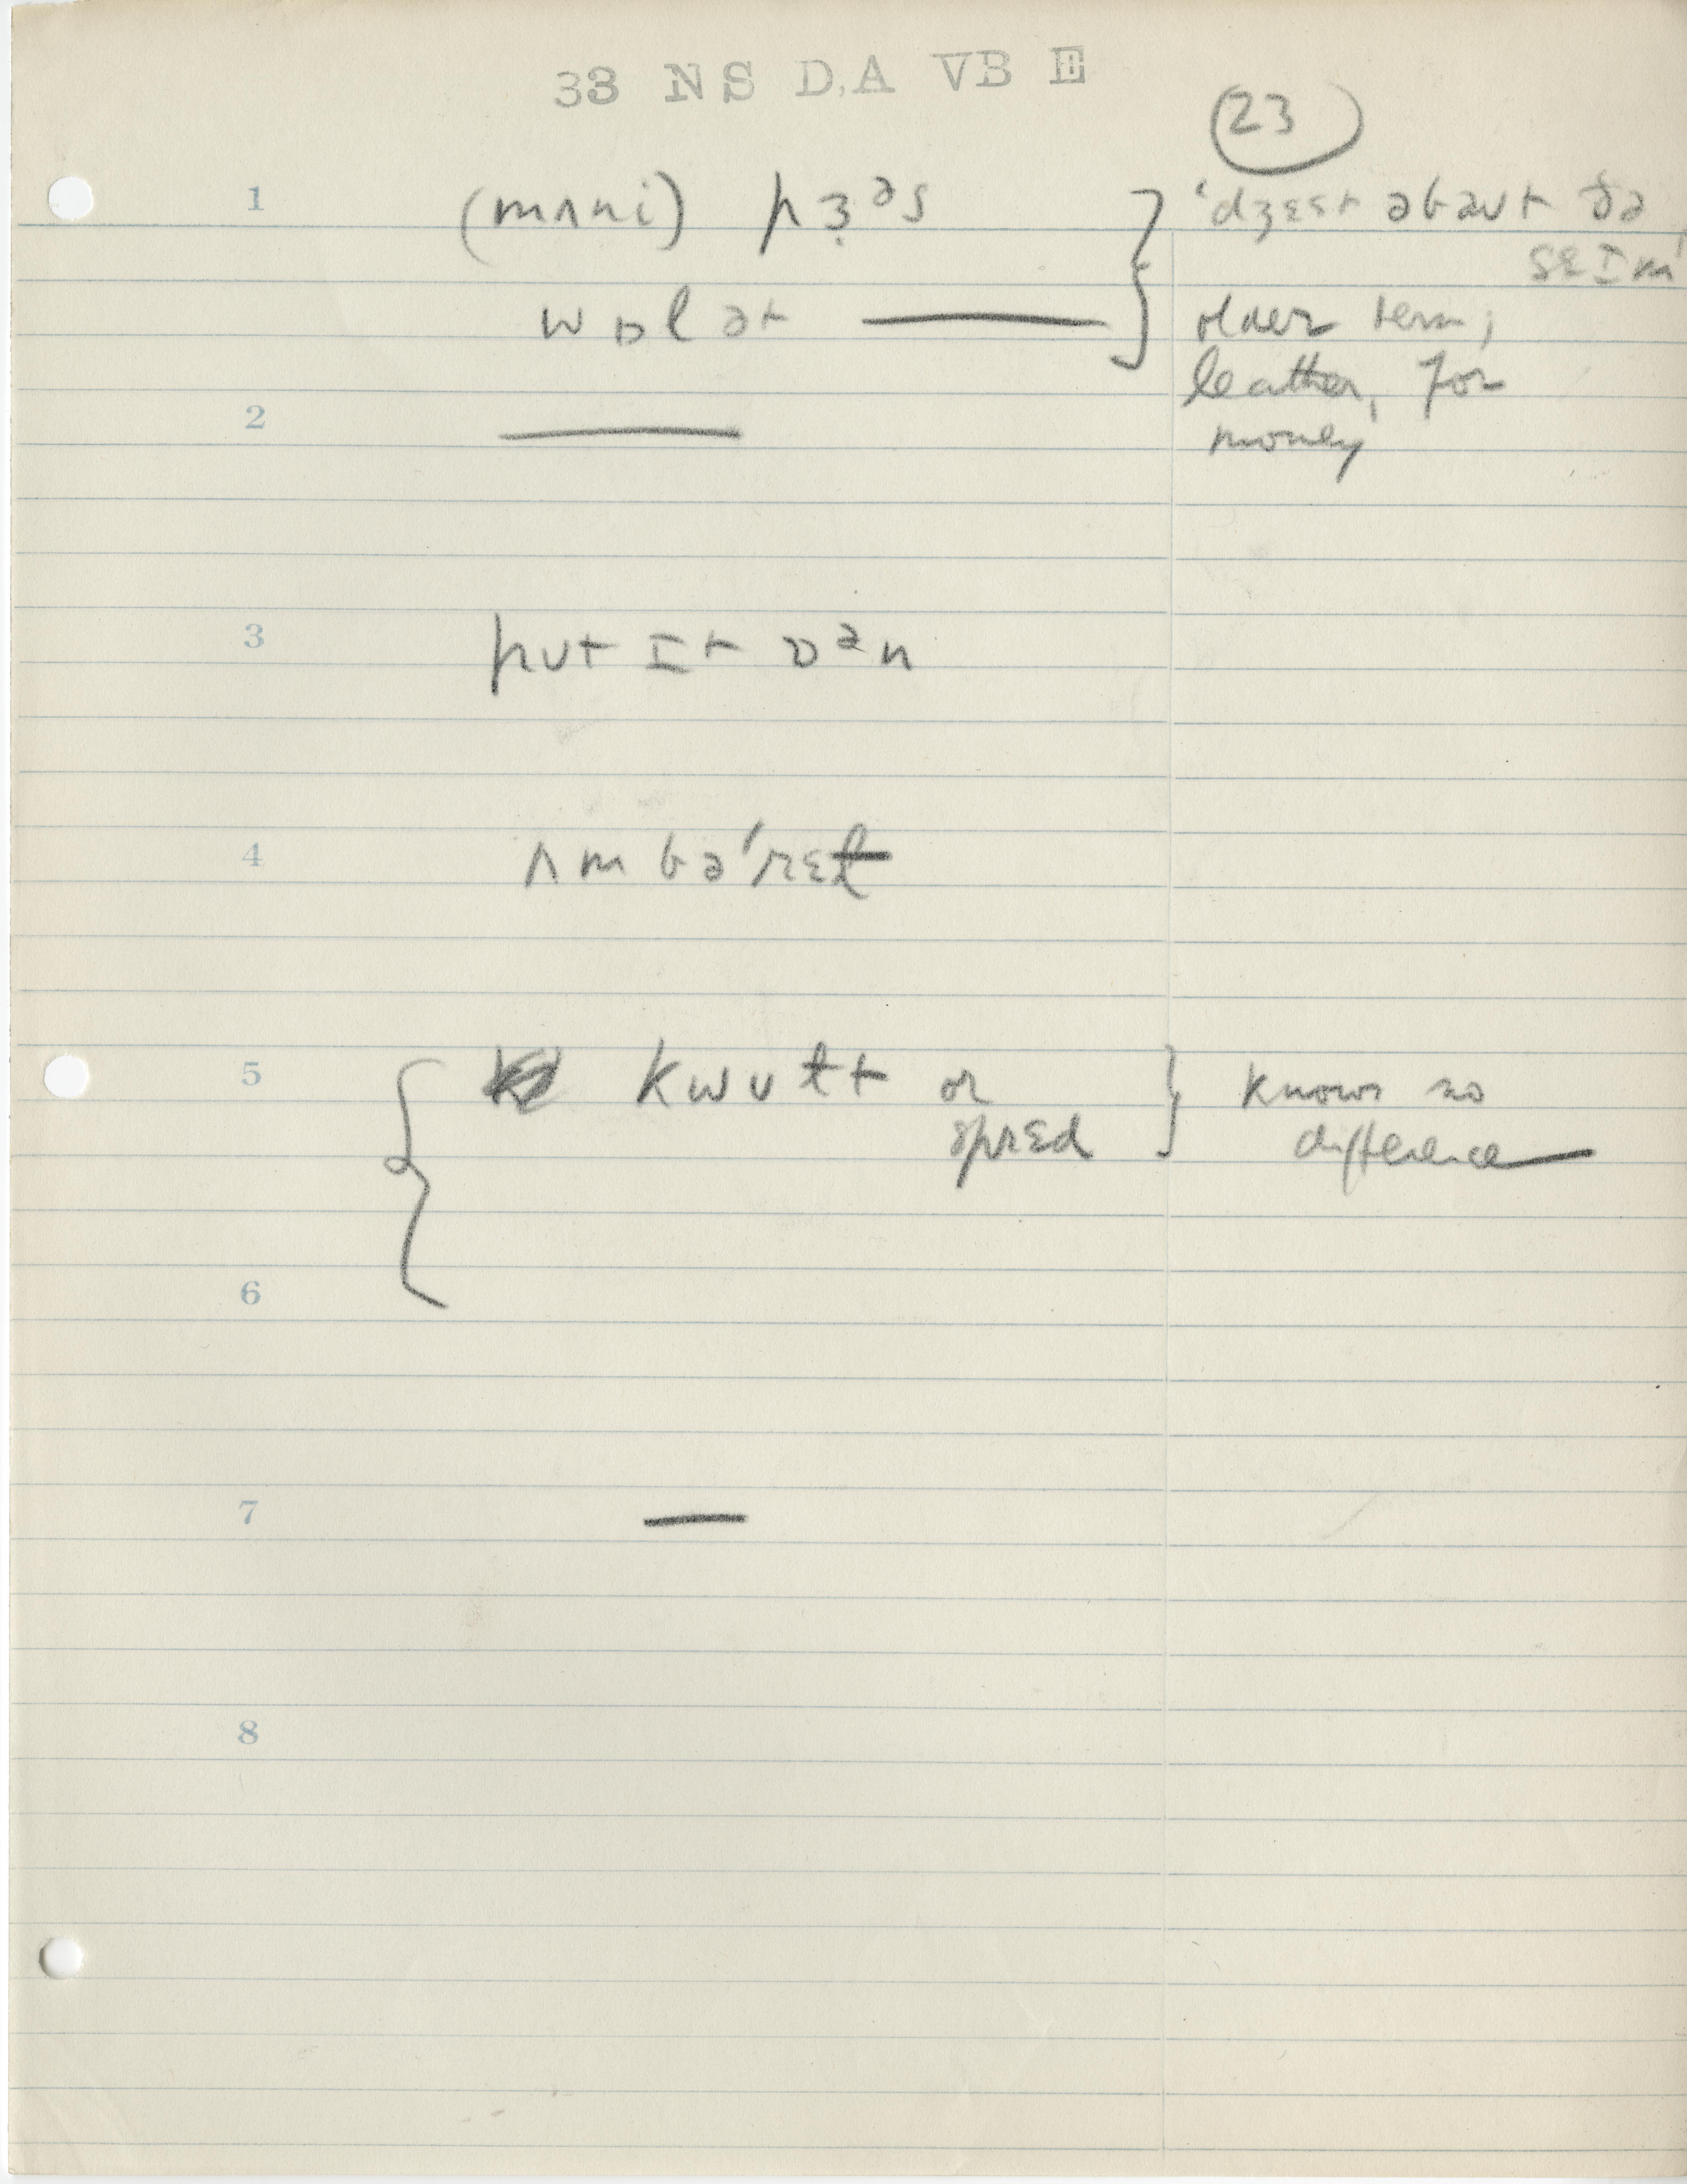 33 NS D,A VB E
23
1 (mʌni) pɜ̣ᵊs } 'dʒɛst əbaut ðə
sɛɪm'
wɒlət — older term;
leather, for
money
2 —
3 put ɪt ɒᵊn
4 ʌmbə'rɛɫ
5 { kwuɫt or } knows no
sprɛd difference
6
7 —
8